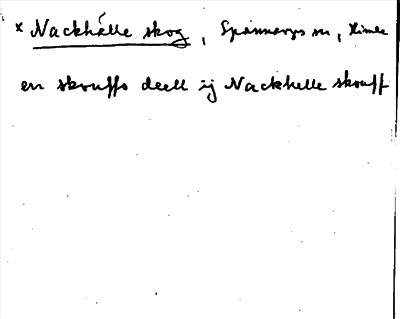 × Nackhälle skog, Spannarps sn, Himle
en skouffs deell ij Nackhelle skouff